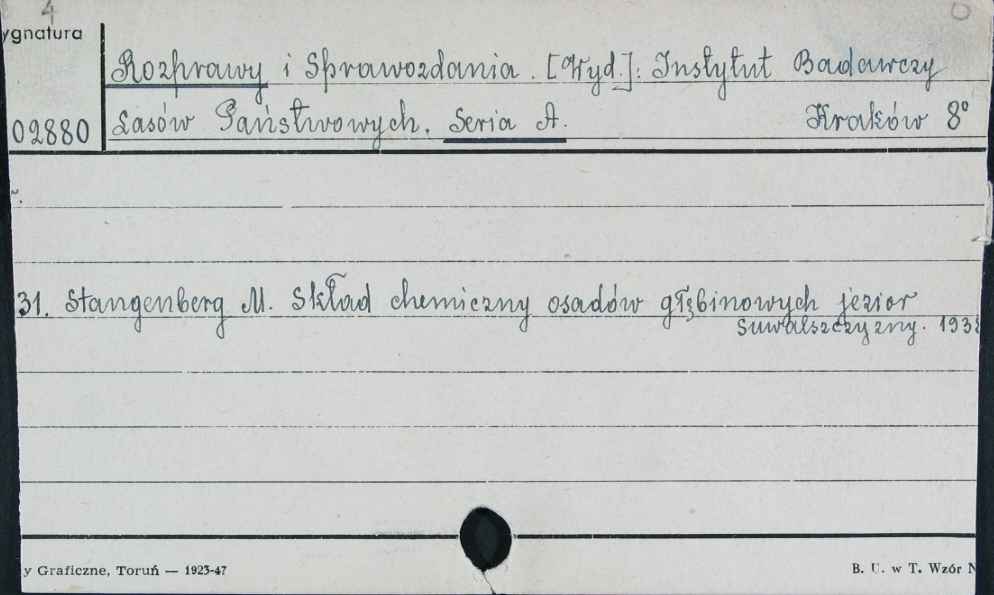 4
ygnatura
Rozprawy i Sprawozdania. [Wyd.]: Instytut Badawczy
02880 Lasów Państwowych. Seria A. Kraków 8°
31. Stangenberg M. Skład chemiczny osadów głębinowych jezior
Suwalszczyzny. 1938
y Graficzne, Toruń — 1923-47 B. U. w T. Wzór N